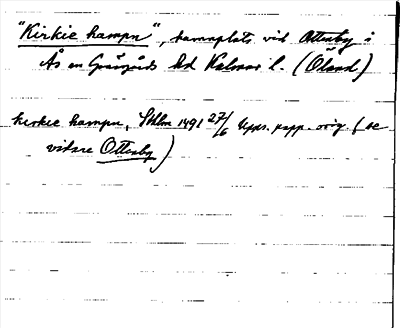 "Kirkie hampn", hamnplats vid Ottenby i
Ås en Gräsgårds hd Kalmar l. (Öland)
kirkie hampn, Sthlm 1491 27/6 Upps. papp. orig. (se
vidare Ottenby)